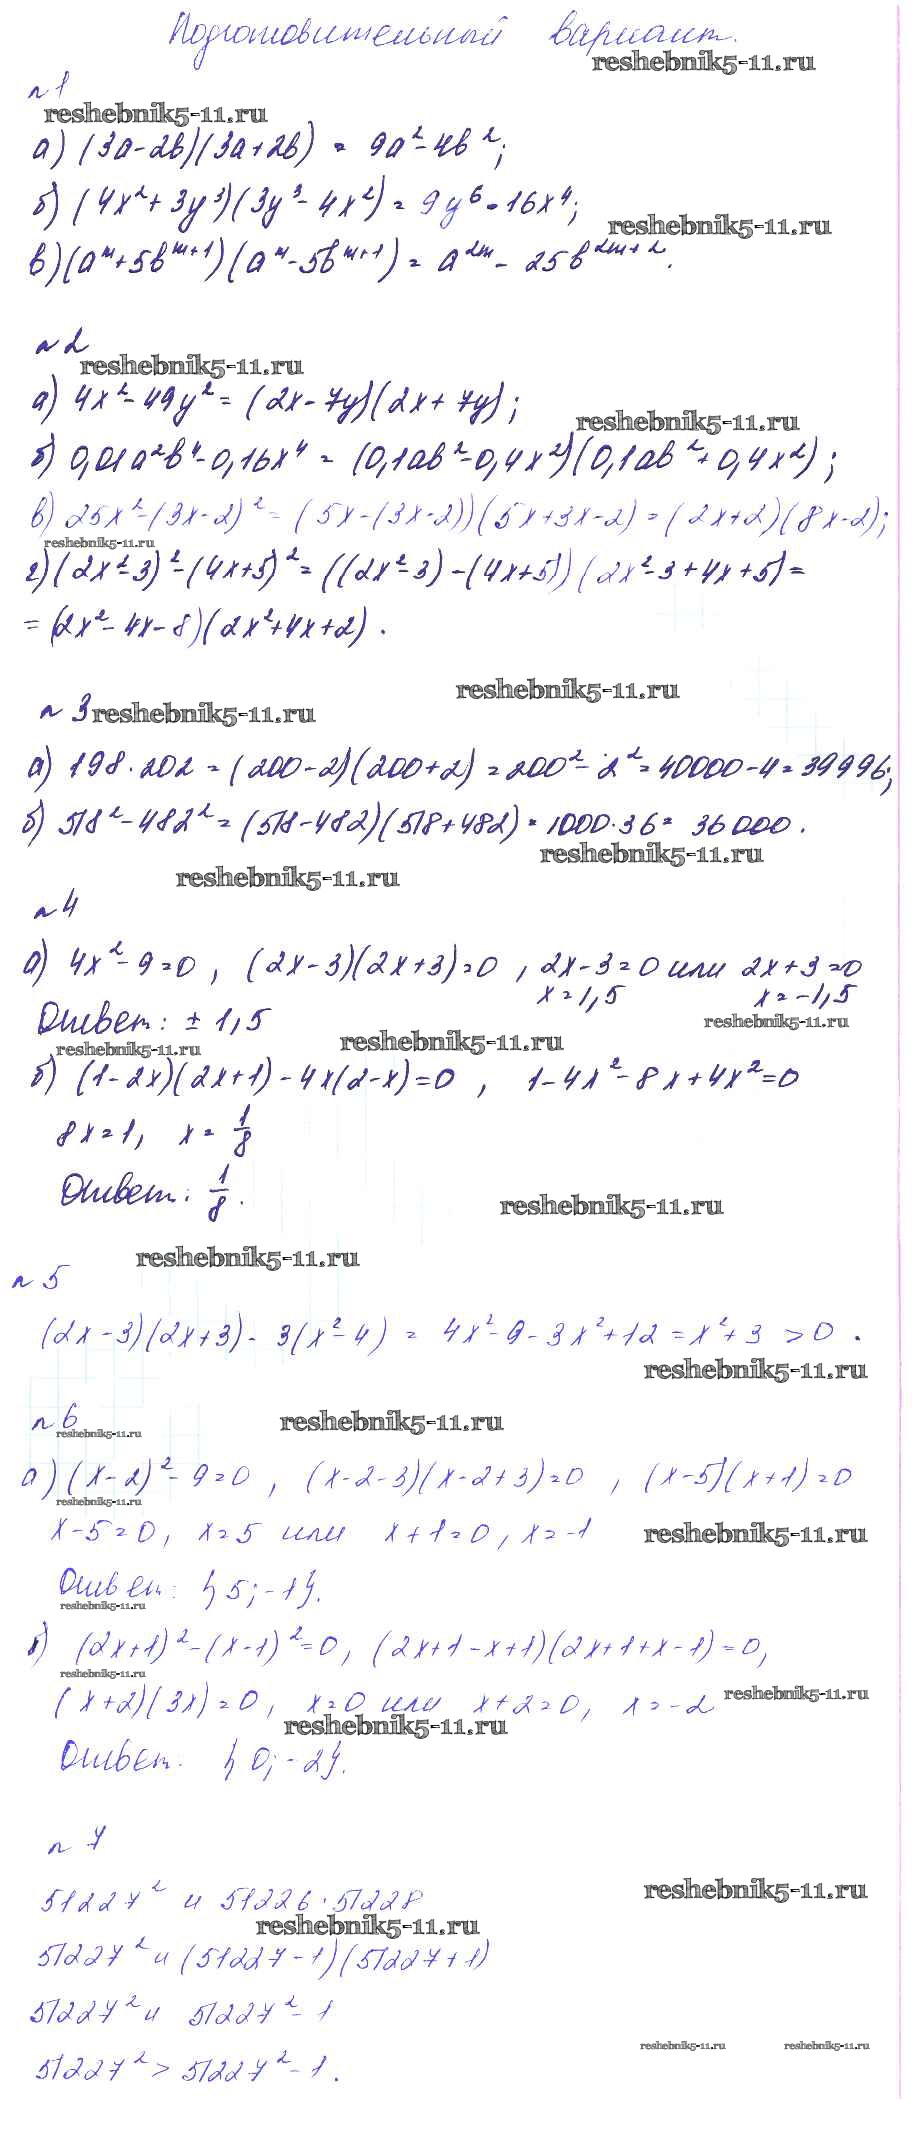 Подготовительный вариант.
reshebnik5-11.ru
n1
reshebnik5-11.ru
а) (3a-2b)(3a+2b) = 9a²-4b²;
б) (4x²+3y³)(3y³-4x²) = 9y⁶-16x⁴;
reshebnik5-11.ru
в) (aᵐ+5bᵐ⁺¹)(aᵐ-5bᵐ⁺¹) = a²ᵐ - 25b²ᵐ⁺².
n2
reshebnik5-11.ru
а) 4x²-49y² = (2x-7y)(2x+7y);
reshebnik5-11.ru
б) 0,01a²b⁴-0,16x⁴ = (0,1ab²-0,4x²)(0,1ab²+0,4x²);
в) 25x²-(3x-2)² = (5x-(3x-2))(5x+3x-2) = (2x+2)(8x-2);
reshebnik5-11.ru
г) (2x²-3)²-(4x+5)² = ((2x²-3)-(4x+5))(2x²-3+4x+5) =
= (2x²-4x-8)(2x²+4x+2).
reshebnik5-11.ru
n3
reshebnik5-11.ru
а) 198·202 = (200-2)(200+2) = 200²-2² = 40000-4 = 39996;
б) 518²-482² = (518-482)(518+482) = 1000·36 = 36000.
reshebnik5-11.ru
reshebnik5-11.ru
n4
а) 4x²-9=0, (2x-3)(2x+3)=0, 2x-3=0 или 2x+3=0
x=1,5 x=-1,5
Ответ: ±1,5
reshebnik5-11.ru
reshebnik5-11.ru
reshebnik5-11.ru
б) (1-2x)(2x+1)-4x(2-x)=0, 1-4x²-8x+4x²=0
8x=1, x=1/8
Ответ: 1/8.
reshebnik5-11.ru
reshebnik5-11.ru
n5
(2x-3)(2x+3)-3(x²-4) = 4x²-9-3x²+12 = x²+3 >0.
reshebnik5-11.ru
n6
reshebnik5-11.ru
reshebnik5-11.ru
а) (x-2)²-9=0, (x-2-3)(x-2+3)=0, (x-5)(x+1)=0
reshebnik5-11.ru
x-5=0, x=5 или x+1=0, x=-1
reshebnik5-11.ru
Ответ: {5;-1}.
reshebnik5-11.ru
б) (2x+1)²-(x-1)²=0, (2x+1-x+1)(2x+1+x-1)=0,
reshebnik5-11.ru
(x+2)(3x)=0, x=0 или x+2=0, x=-2
reshebnik5-11.ru
reshebnik5-11.ru
Ответ: {0;-2}.
n7
51227² и 51226·51228
reshebnik5-11.ru
reshebnik5-11.ru
51227² и (51227-1)(51227+1)
51227² и 51227²-1
51227² > 51227²-1.
reshebnik5-11.ru
reshebnik5-11.ru